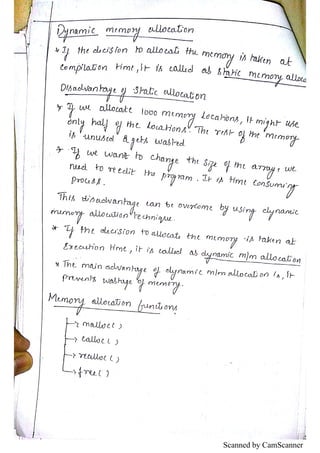 Dynamic memory allocation
* If the decision to allocate the memory is taken at
compilation time, it is called as static memory alloca
Disadvantage of static allocation
* If we allocate 1000 memory locations, it might use
only half of the locations. The rest of the memory
is unused & gets wasted
* If we want to change the size of the array, we
need to reedit the program. It is time consuming
process.
This disadvantage can be overcome by using dynamic
memory allocation technique
* If the decision to allocate the memory is taken at
Execution time, it is called as dynamic m/m allocation
* The main advantage of dynamic m/m allocation is, it
prevents wastage of memory.
Memory allocation functions
→ malloc( )
→ calloc( )
→ realloc( )
→ free( )
Scanned by CamScanner